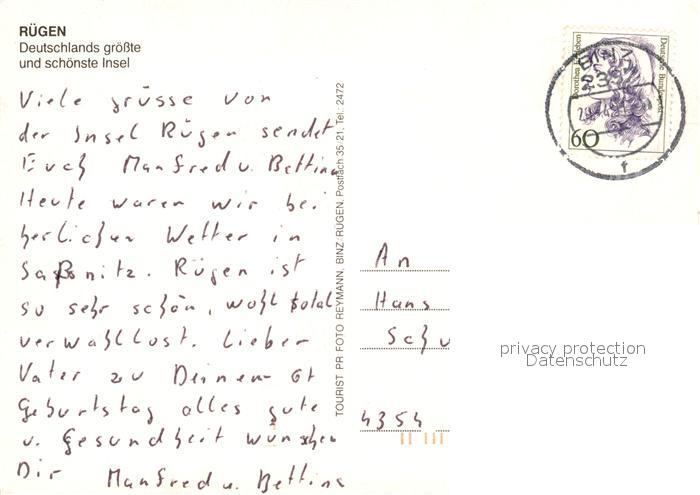 RÜGEN
Deutschlands größte
und schönste Insel
Viele grüsse von
der Insel Rügen sendet
Euch Manfred u. Bettina
Heute waren wir bei
herlichen Wetter in
Saßnitz. Rügen ist
so sehr schön, wohl total
verwahllost. Lieber
Vater zu Deinem 61
Geburtstag alles gute
u. gesundheit wünschen
Dir Manfred u. Bettina
TOURIST PR FOTO REYMANN, BINZ RÜGEN, Postfach 35/21, Tel.: 2472
Dorothea Erxleben
Deutsche Bundespost
60
BINZ
f
An
Hans
Schu
4354
privacy protection
Datenschutz